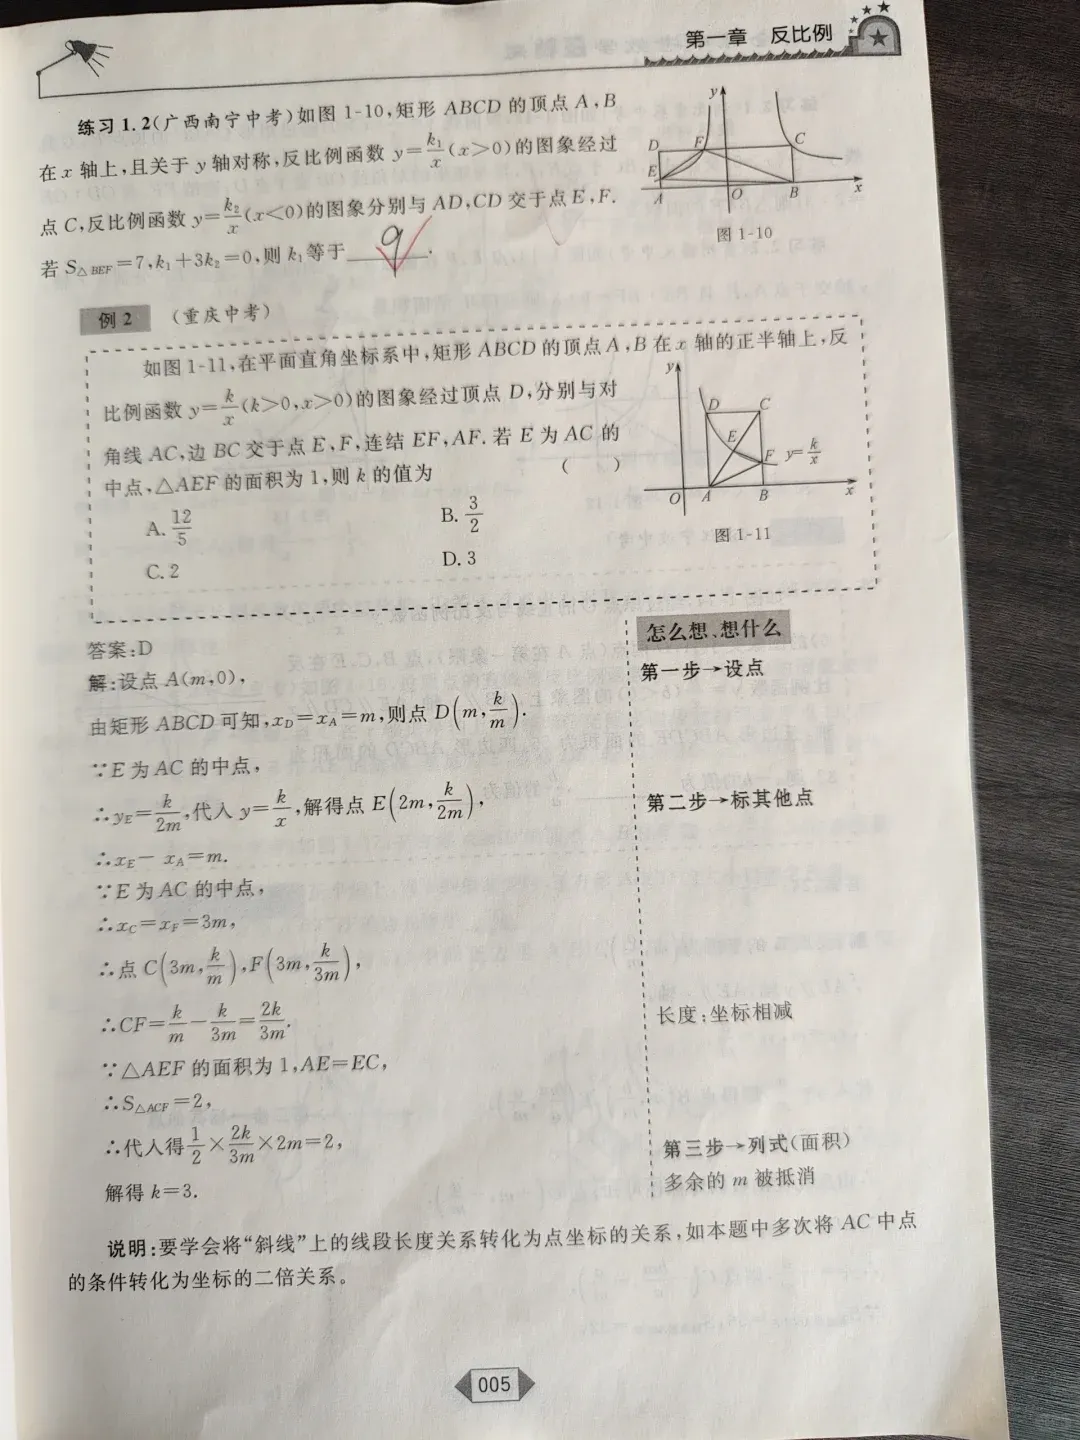 第一章 反比例
练习1.2(广西南宁中考)如图1-10,矩形ABCD的顶点A,B
在x轴上,且关于y轴对称,反比例函数y=k₁/x(x>0)的图象经过
点C,反比例函数y=k₂/x(x<0)的图象分别与AD,CD交于点E,F.
若S△BEF=7,k₁+3k₂=0,则k₁等于 9 .
y
D F C
E
A O B x
图1-10
例2 (重庆中考)
如图1-11,在平面直角坐标系中,矩形ABCD的顶点A,B在x轴的正半轴上,反
比例函数y=k/x(k>0,x>0)的图象经过顶点D,分别与对
角线AC,边BC交于点E,F,连结EF,AF.若E为AC的
中点,△AEF的面积为1,则k的值为 ( )
A.12/5
B.3/2
C.2
D.3
y
D C
E
F y=k/x
O A B x
图1-11
答案:D
解:设点A(m,0),
由矩形ABCD可知,x_D=x_A=m,则点D(m,k/m).
∵E为AC的中点,
∴y_E=k/2m,代入y=k/x,解得点E(2m,k/2m),
∴x_E-x_A=m.
∵E为AC的中点,
∴x_C=x_F=3m,
∴点C(3m,k/m),F(3m,k/3m),
∴CF=k/m-k/3m=2k/3m.
∵△AEF的面积为1,AE=EC,
∴S△ACF=2,
∴代入得1/2×2k/3m×2m=2,
解得k=3.
怎么想、想什么
第一步→设点
第二步→标其他点
长度:坐标相减
第三步→列式(面积)
多余的m被抵消
说明:要学会将“斜线”上的线段长度关系转化为点坐标的关系,如本题中多次将AC中点
的条件转化为坐标的二倍关系。
005